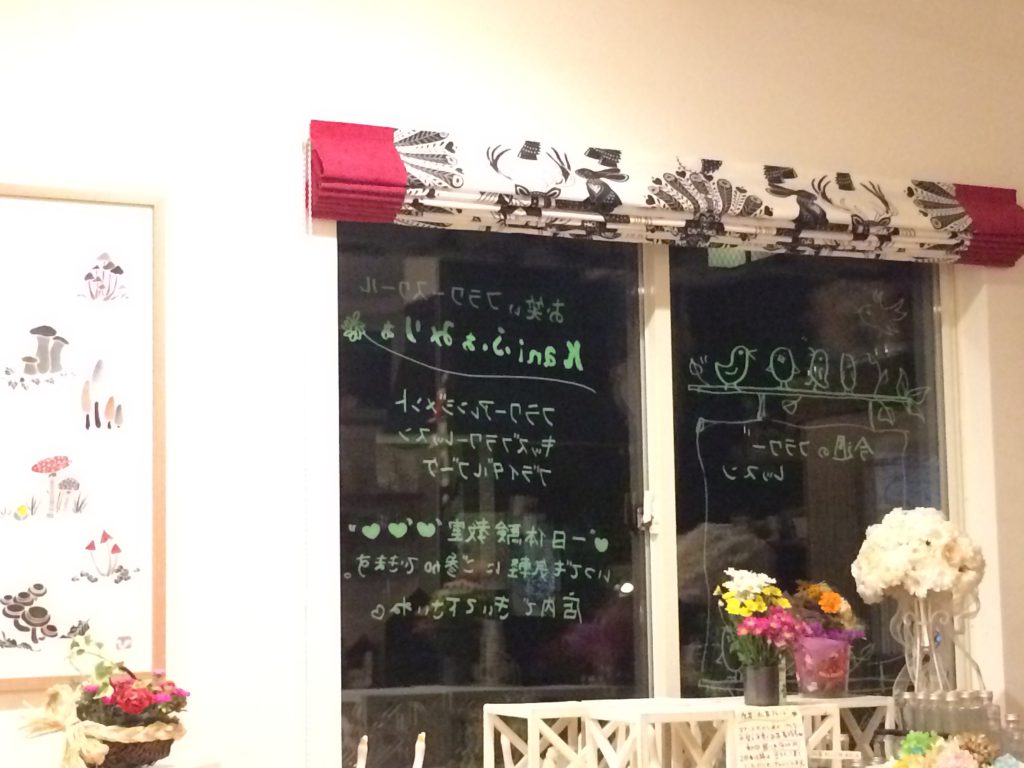 お笑いフラワースクール
Kaniふぁみりぁ
フラワーアレンジメント
キッズフラワーレッスン
ブライダルブーケ
一日体験教室
いつでも気軽にご参加できます。
店内できいて下さいね
今週のフラワー
レッスン